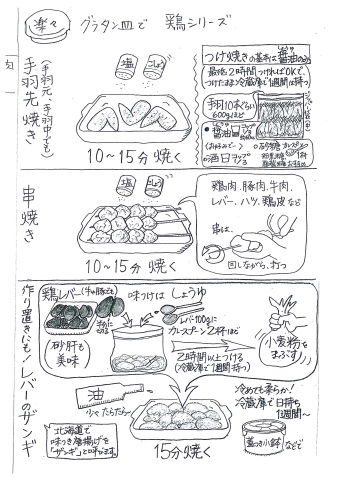 楽々 グラタン皿で 鶏シリーズ
手羽先焼き
(手羽元、手羽中でも)
塩
こしょう
10～15分焼く
つけ焼きの基本は醤油のみ
最低2時間つければOKで、
つけたまま冷蔵庫で1週間は持つ
手羽10本ぐらい
600gほど
醤油
(お好みで…)
酒
串焼き
塩
こしょう
10～15分焼く
鶏肉、豚肉、牛肉、
レバー、ハツ、鶏皮など
串は、
回しながら、打つ
作り置きにも!レバーのザンギ
鶏レバー(牛や豚でも)
砂肝も
美味
味つけは しょうゆ
レバー100gに
カレースプーン2杯ほど
2時間以上つける
(冷蔵庫で1週間持つ)
小麦粉を
まぶす
油
少々たらたら～
北海道で
味つき唐揚げを
「ザンギ」と呼びます。
15分焼く
冷めても柔らか!
冷蔵庫で日持ち
1週間～
蓋つき小鉢
などで